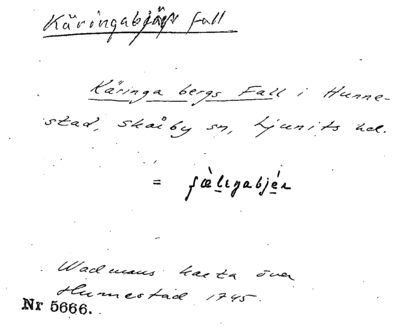 Käringabjärs fall
Käringa bergs Fall i Hunne-
stad, Skårby sn, Ljunits hd.
= ʃæ̀lıŋabjéʀ
Wadmans karta över
Hunnestad 1745.
Nr 5666.